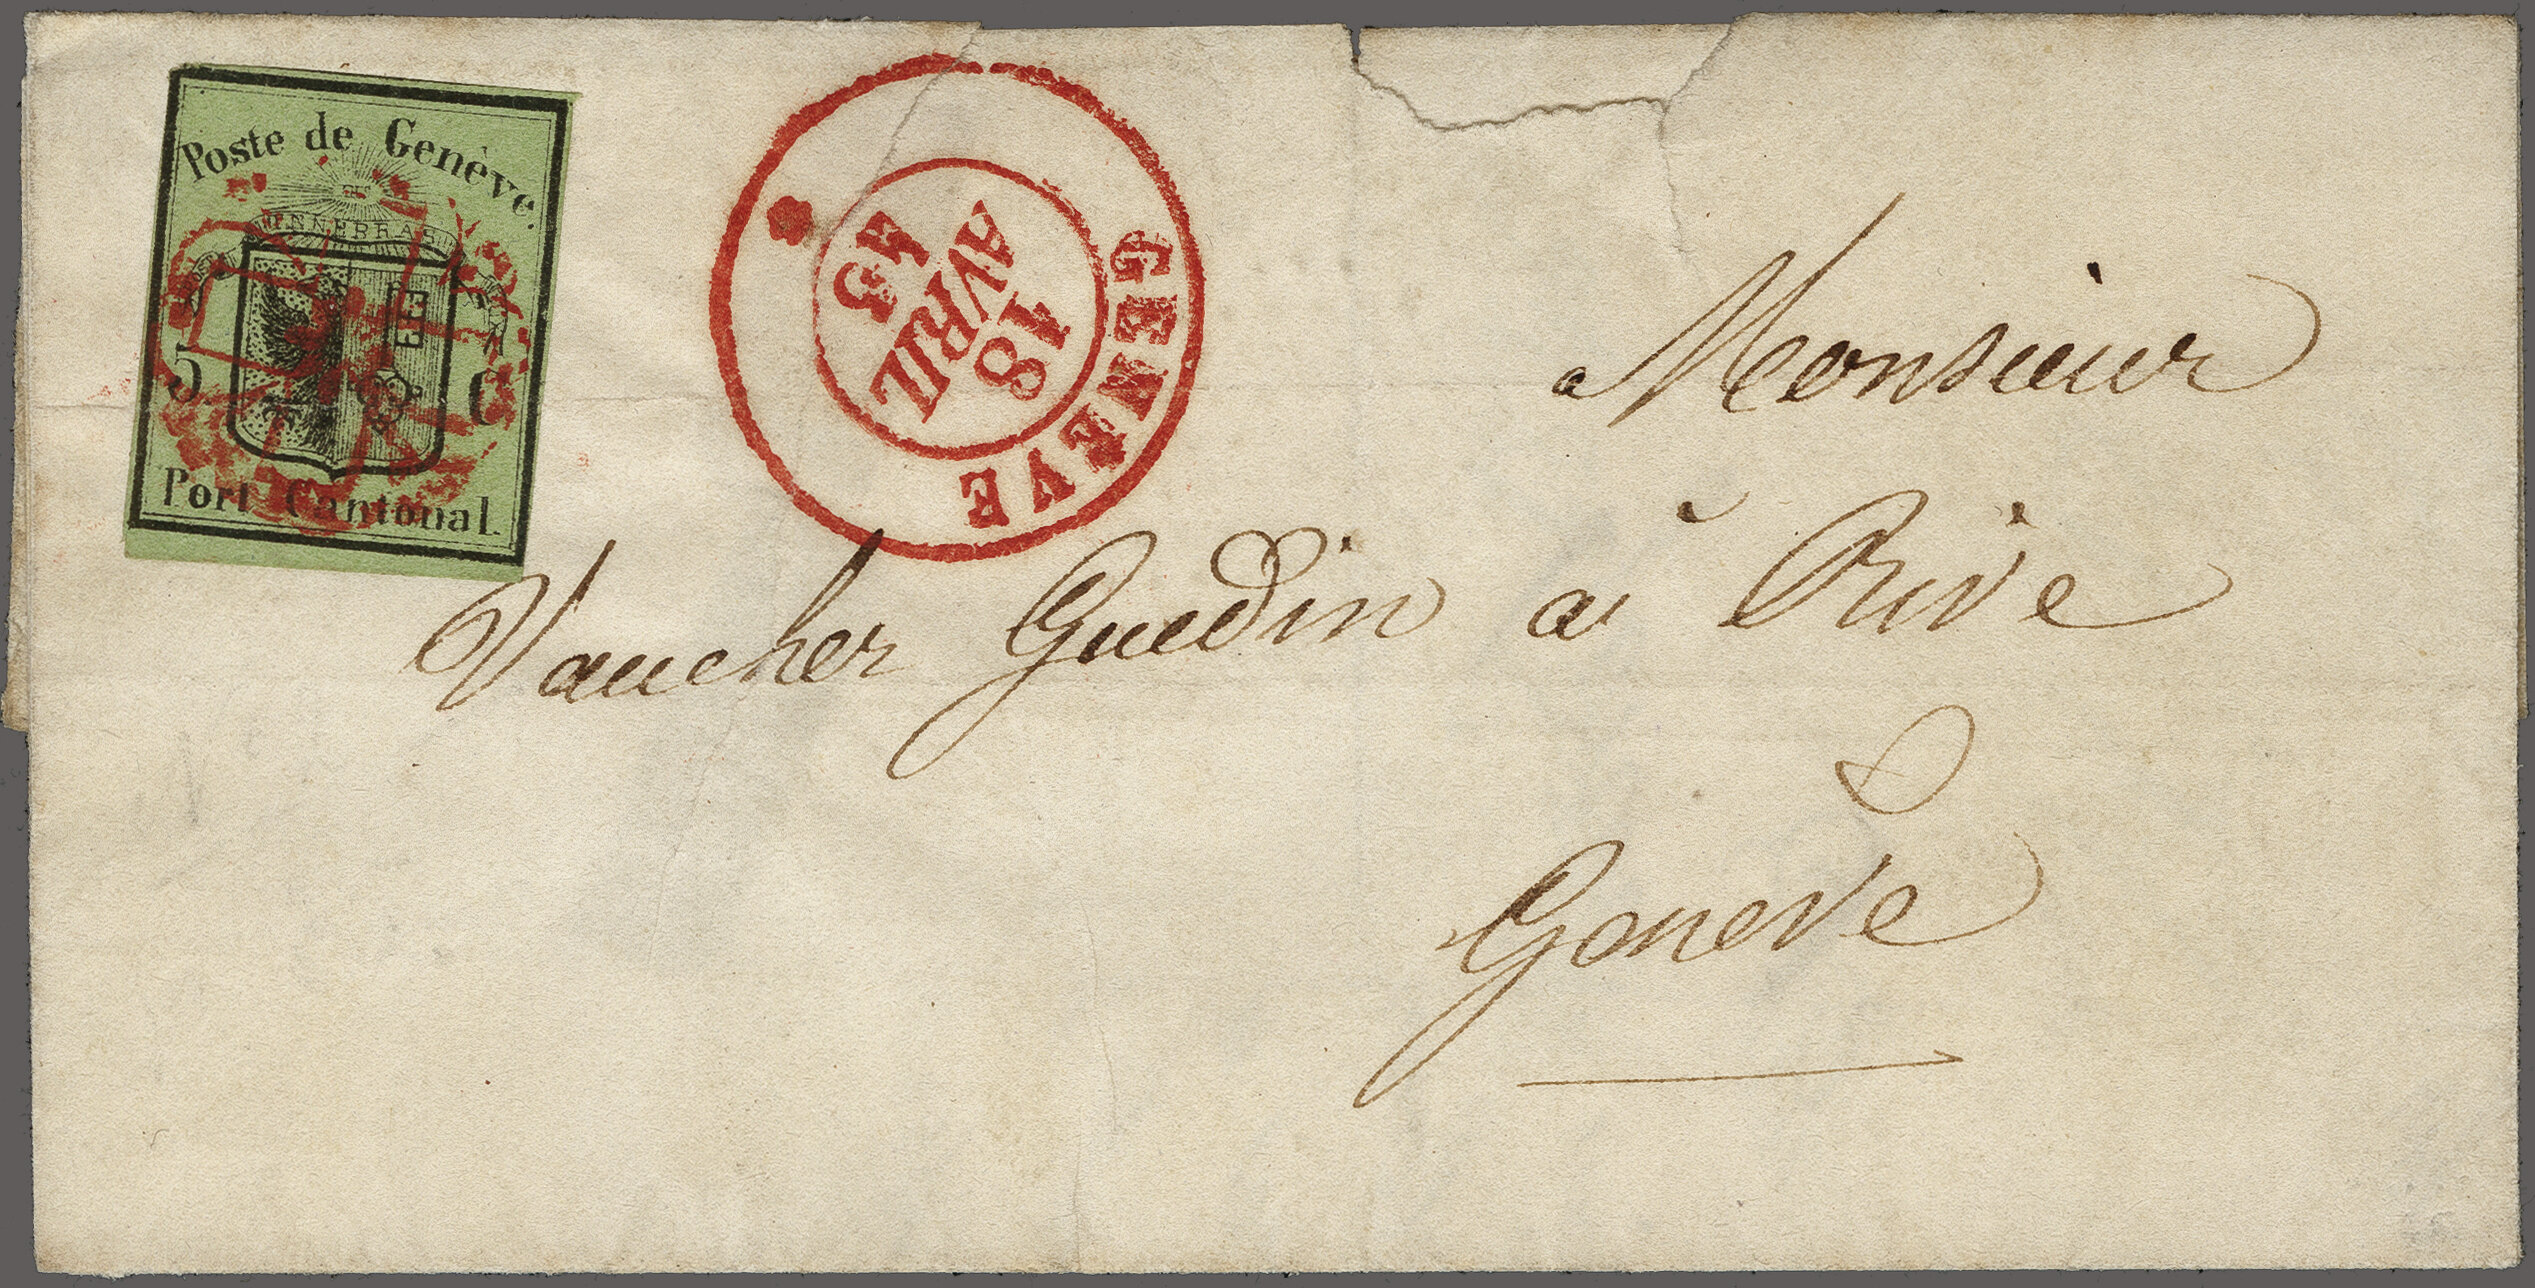 Poste de Genève.
POST TENEBRAS LUX
5 C
Port Cantonal.
GENEVE
18
AVRIL
45
a Monsieur
Vaucher Guedin a Rive
Genève